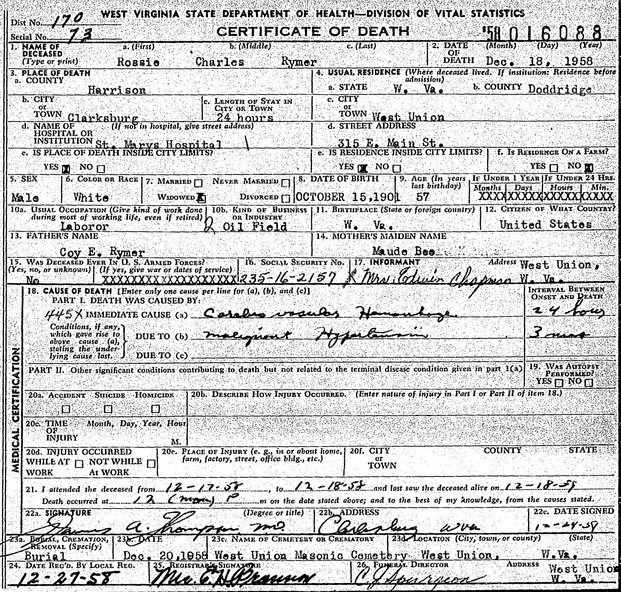 WEST VIRGINIA STATE DEPARTMENT OF HEALTH—DIVISION OF VITAL STATISTICS
Dist No. 170
Serial No. 73
CERTIFICATE OF DEATH
58 016088
1. NAME OF DECEASED (Type or print) a. (First) b. (Middle) c. (Last)
Rossie Charles Rymer
2. DATE OF DEATH (Month) (Day) (Year)
Dec. 18, 1958
3. PLACE OF DEATH
a. COUNTY
Harrison
4. USUAL RESIDENCE (Where deceased lived. If institution: Residence before admission)
a. STATE W. Va. b. COUNTY Doddridge
b. CITY or TOWN Clarksburg
c. LENGTH OF STAY IN CITY OR TOWN
24 hours
c. CITY or TOWN West Union
d. NAME OF HOSPITAL OR INSTITUTION (If not in hospital, give street address)
St. Marys Hospital
d. STREET ADDRESS
315 E. Main St.
e. IS PLACE OF DEATH INSIDE CITY LIMITS?
YES NO
e. IS RESIDENCE INSIDE CITY LIMITS?
YES NO
f. IS RESIDENCE ON A FARM?
YES NO
5. SEX
Male
6. COLOR OR RACE
White
7. MARRIED NEVER MARRIED
WIDOWED DIVORCED
8. DATE OF BIRTH
OCTOBER 15, 1901
9. AGE (In years last birthday)
57
IF UNDER 1 YEAR IF UNDER 24 HRS.
Months Days Hours Min.
10a. USUAL OCCUPATION (Give kind of work done during most of working life, even if retired)
Laboror
10b. KIND OF BUSINESS OR INDUSTRY
Oil Field
11. BIRTHPLACE (State or foreign country)
W. Va.
12. CITIZEN OF WHAT COUNTRY?
United States
13. FATHER'S NAME
Coy E. Rymer
14. MOTHER'S MAIDEN NAME
Maude Bee
15. WAS DECEASED EVER IN U. S. ARMED FORCES?
(Yes, no, or unknown) (If yes, give war or dates of service)
No
16. SOCIAL SECURITY NO.
235-16-2157
17. INFORMANT Address
Mrs. Edwin Chapman West Union, W. Va.
MEDICAL CERTIFICATION
18. CAUSE OF DEATH (Enter only one cause per line for (a), (b), and (c))
INTERVAL BETWEEN ONSET AND DEATH
PART I. DEATH WAS CAUSED BY:
445X IMMEDIATE CAUSE (a) Cerebro vascular Hemorrhage 24 hours
Conditions, if any, which gave rise to above cause (a), stating the underlying cause last.
DUE TO (b) malignant Hypertension 3 mos
DUE TO (c)
PART II. Other significant conditions contributing to death but not related to the terminal disease condition given in part 1(a)
19. WAS AUTOPSY PERFORMED?
YES NO
20a. ACCIDENT SUICIDE HOMICIDE
20b. DESCRIBE HOW INJURY OCCURRED. (Enter nature of injury in Part I or Part II of item 18.)
20c. TIME OF INJURY Month, Day, Year, Hour
M.
20d. INJURY OCCURRED
WHILE AT WORK NOT WHILE AT WORK
20e. PLACE OF INJURY (e. g., in or about home, farm, factory, street, office bldg., etc.)
20f. CITY or TOWN COUNTY STATE
21. I attended the deceased from 12-17-58, to 12-18-58 and last saw the deceased alive on 12-18-58
Death occurred at 12 (noon) P m on the date stated above; and to the best of my knowledge, from the causes stated.
22a. SIGNATURE (Degree or title)
A. Thompson MD
22b. ADDRESS
Clarksburg W Va
22c. DATE SIGNED
23a. BURIAL, CREMATION, REMOVAL (Specify)
Burial
23b. DATE
Dec. 20, 1958
23c. NAME OF CEMETERY OR CREMATORY
West Union Masonic Cemetery
23d. LOCATION (City, town, or county) (State)
West Union, W.Va.
24. DATE REC'D. BY LOCAL REG.
12-27-58
25. REGISTRAR'S SIGNATURE
26. FUNERAL DIRECTOR ADDRESS
C. J. Spurgeon West Union W. Va.